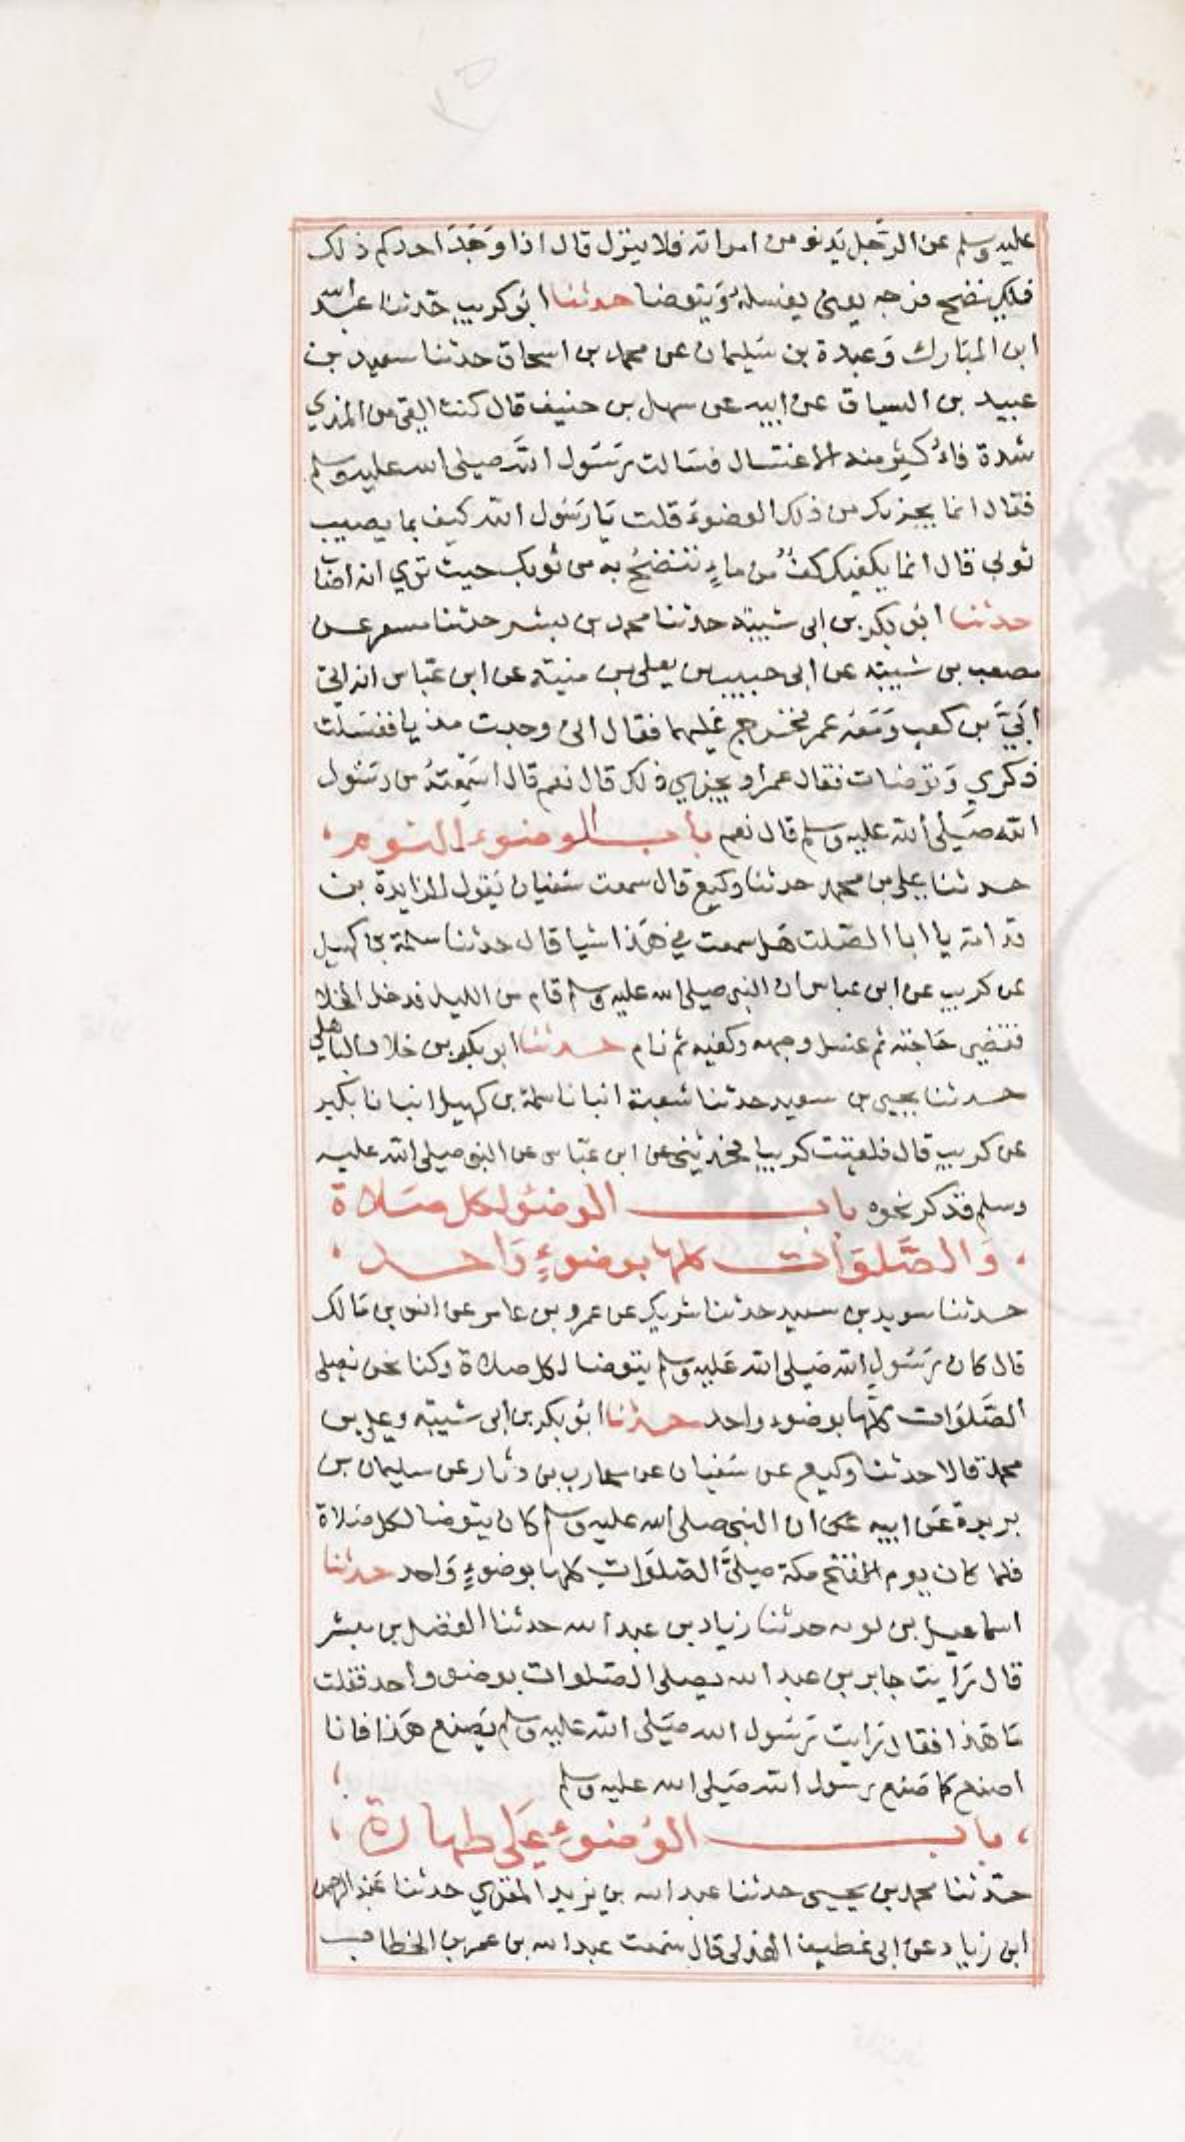 عليه وسلم عن الرجل يدنو من امراته فلا ينزل قال اذا وجد احدكم ذلك
فلينضح فرجه يعني يغسله ويتوضا حدثنا ابو كريب حدثنا عبد الله
ابن المبارك وعبدة بن سليمان عن محمد بن اسحاق حدثنا سعيد بن
عبيد بن السباق عن ابيه عن سهل بن حنيف قال كنت القى من المذي
شدة فاكثر منه الاغتسال فسالت رسول الله صلى الله عليه وسلم
فقال انما يجزيك من ذلك الوضوء قلت يا رسول الله كيف بما يصيب
ثوبي قال انما يكفيك كف من ماء تنضح به من ثوبك حيث تري انه اصاب
حدثنا ابو بكر بن ابى شيبة حدثنا محمد بن بشر حدثنا مسعر عن
مصعب بن شيبة عن ابى حبيب بن يعلى بن منية عن ابن عباس انه اتى
ابي بن كعب ومعه عمر فخرج عليهما فقال انى وجدت مذيا فغسلت
ذكري وتوضات فقال عمر او يجزي ذلك قال نعم قال اسمعته من رسول
الله صلى الله عليه وسلم قال نعم باب الوضوء النوم
حدثنا علي بن محمد حدثنا وكيع قال سمعت سفيان يقول لزايدة بن
قدامة يا ابا الصلت هل سمعت في هذا شيا قال حدثنا سلمة بن كهيل
عن كريب عن ابن عباس ان النبي صلى الله عليه وسلم قام من الليل فدخل الخلا
فقضى حاجته ثم غسل وجهه وكفيه ثم نام حدثنا ابو بكر بن خلاد الباهلي
حدثنا يحيى بن سعيد حدثنا شعبة انبانا سلمة بن كهيل انبانا بكير
عن كريب قال فلقيت كريبا فحدثني عن ابن عباس عن النبي صلى الله عليه
وسلم فذكر نحوه باب الوضوء لكل صلاة
والصلوات كلها بوضوء واحد
حدثنا سويد بن سعيد حدثنا شريك عن عمرو بن عامر عن انس بن مالك
قال كان رسول الله صلى الله عليه وسلم يتوضا لكل صلاة وكنا نحن نصلى
الصلوات كلها بوضوء واحد حدثنا ابو بكر بن ابى شيبة وعلي بن
محمد قالا حدثنا وكيع عن سفيان عن محارب بن دثار عن سليمان بن
بريدة عن ابيه ان النبي صلى الله عليه وسلم كان يتوضا لكل صلاة
فلما كان يوم فتح مكة صلى الصلوات كلها بوضوء واحد حدثنا
اسماعيل بن توبه حدثنا زياد بن عبد الله حدثنا الفضل بن مبشر
قال رايت جابر بن عبد الله يصلى الصلوات بوضو واحد فقلت
ما هذا فقال رايت رسول الله صلى الله عليه وسلم يصنع هذا فانا
اصنع كما صنع رسول الله صلى الله عليه وسلم
باب الوضوء على طهارة
حدثنا محمد بن يحيى حدثنا عبد الله بن يزيد المقري حدثنا عبد الرحمن
ابن زياد عن ابى غطيف الهذلى قال سمعت عبد الله بن عمر بن الخطاب